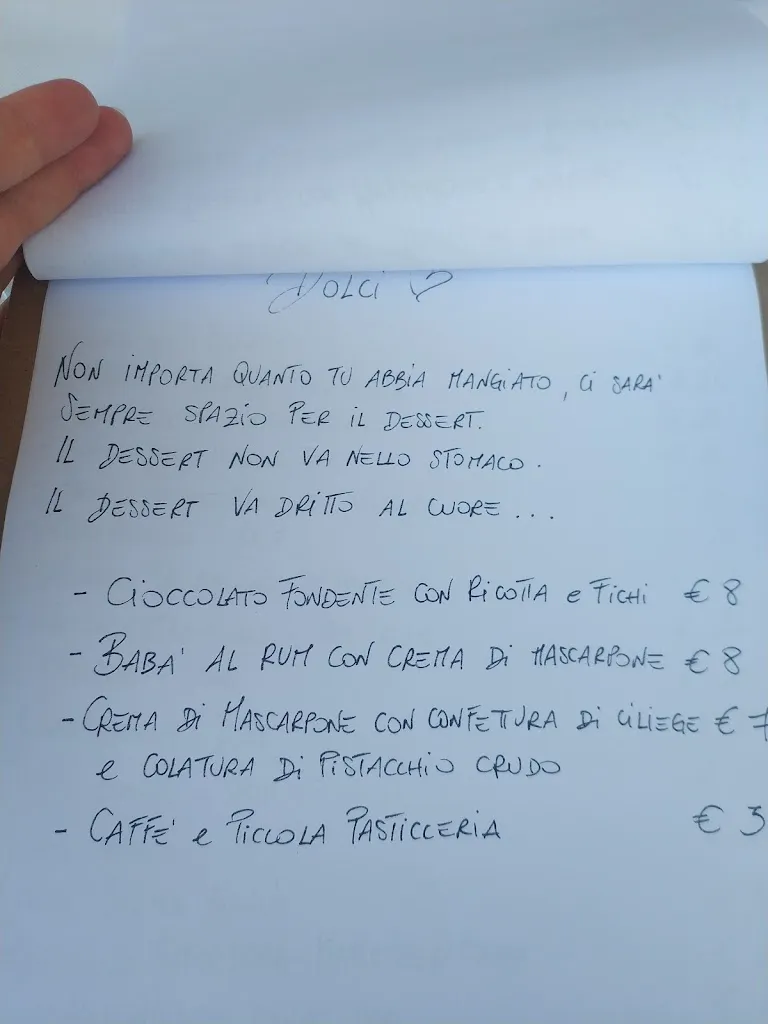 Dolci ♡
NON IMPORTA QUANTO TU ABBIA MANGIATO, CI SARA'
SEMPRE SPAZIO PER IL DESSERT.
IL DESSERT NON VA NELLO STOMACO.
IL DESSERT VA DRITTO AL CUORE...
- CIOCCOLATO FONDENTE CON RICOTTA e FICHI € 8
- BABA' AL RUM CON CREMA DI MASCARPONE € 8
- CREMA DI MASCARPONE CON CONFETTURA DI CILIEGE € 7
e COLATURA DI PISTACCHIO CRUDO
- CAFFE' e PICCOLA PASTICCERIA € 3